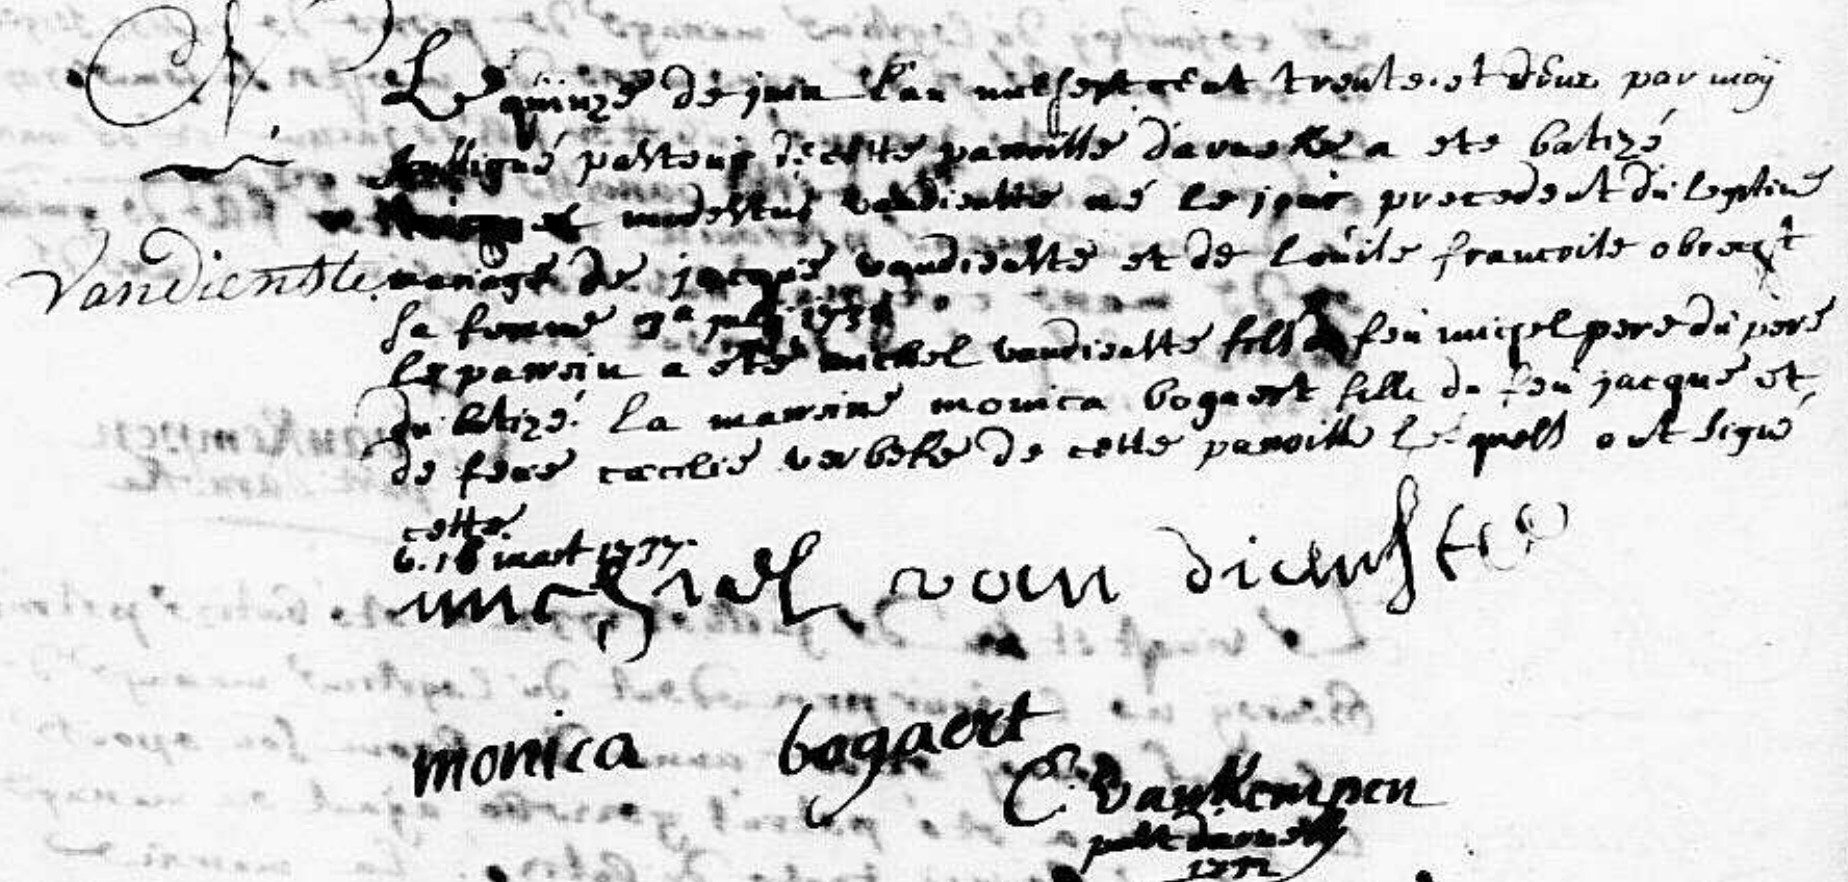 N.
Le quinze de juin l'an mil sept cent trente et deux par moy
soussigné pasteur de cette paroisse d'arneke a eté batizé
modestus vandienste né le jour precedent du legitime
Vandienste.
mariage de jacque vandienste et de louise francoise obreçt
sa femme
le parrein a eté michel vandienste fils feu miçel pere du pere
du batizé. la marreine monica bogaert fille de feu jacque et
de feue cæcilie verbeke de cette paroisse lesquels ont signé
cette
6. 18 mart 1737.
michiel van dienste
monica bogaert
C. Van Kempen
past d'arneke
1732